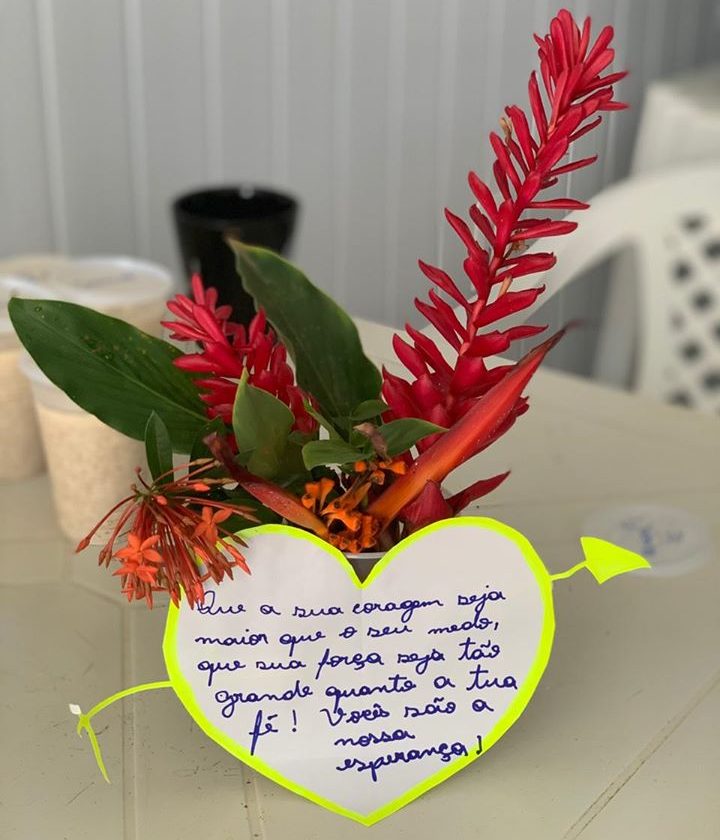 Que a sua coragem seja
maior que o seu medo,
que sua força seja tão
grande quanto a tua
fé! Vocês são a
nossa
esperança!